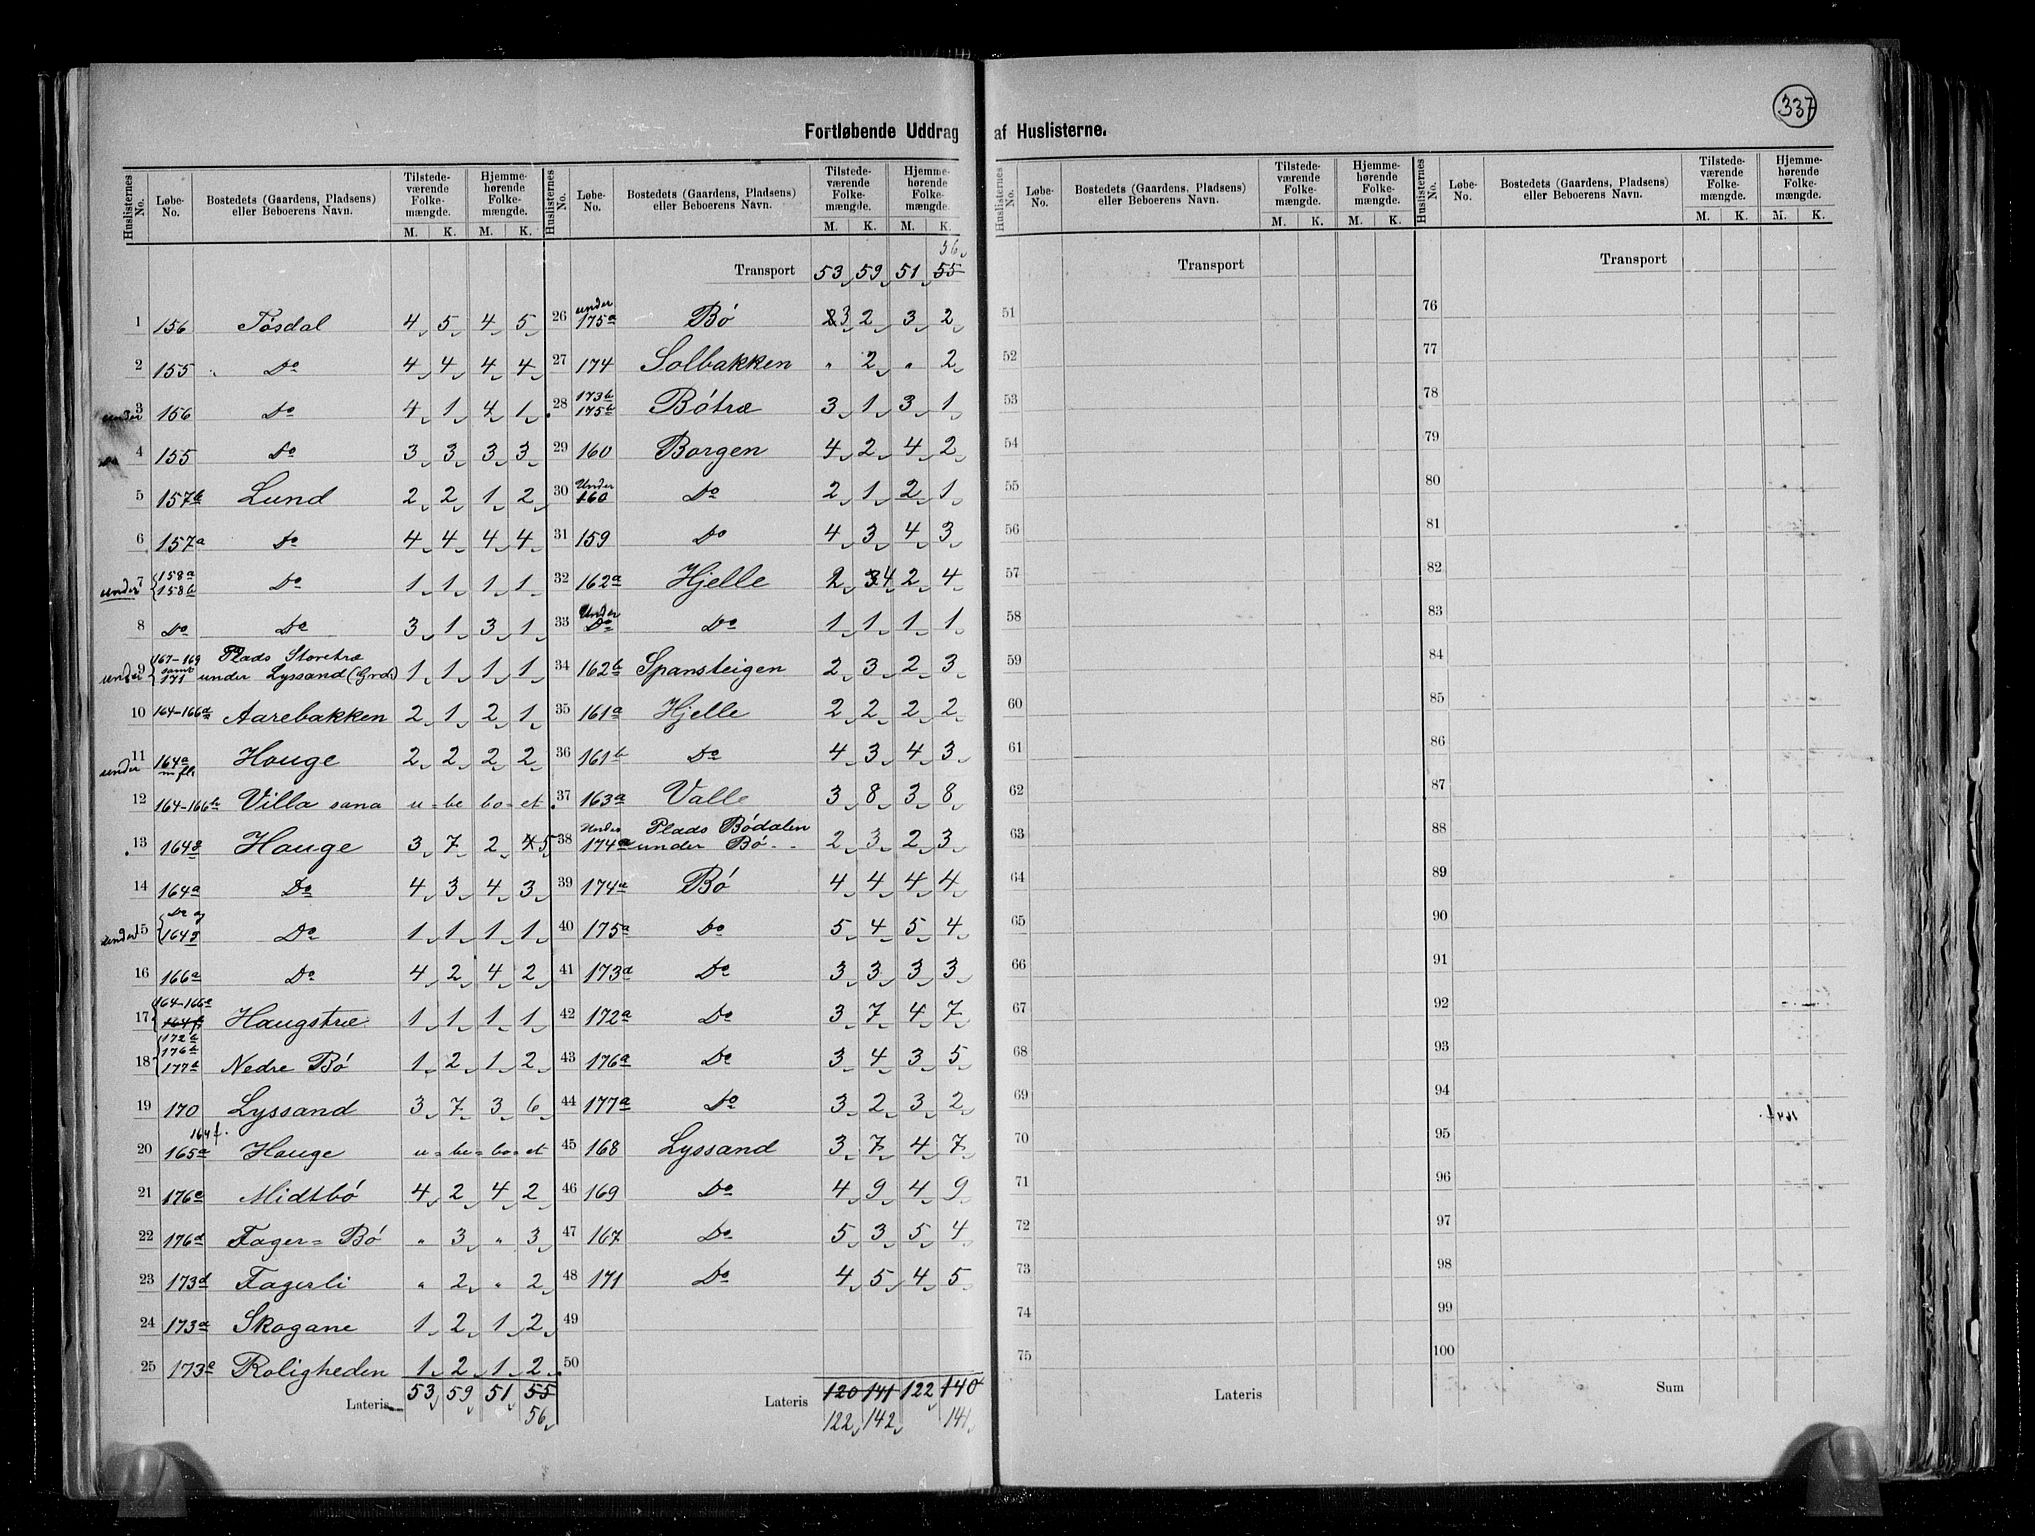 337
Fortløbende Uddrag af Huslisterne.
Huslisternes No. Løbe-No. Bostedets (Gaardens, Pladsens) eller Beboerens Navn. Tilstedeværende Folkemængde. M. K. Hjemmehørende Folkemængde. M. K.
1 156 Tøsdal 4 5 4 5
2 155 Do 4 4 4 4
under 3 156 Do 4 1 4 1
Do 4 155 Do 3 3 3 3
5 157b Lund 2 2 1 2
6 157a Do 4 4 4 4
under 7 158a 158b Do 1 1 1 1
8 Do Do 3 1 3 1
under 9 167-169 samt 171 Plads Storetræ under Lyssand (Grd.) 1 1 1 1
10 164-166a Aarebakken 2 1 2 1
under 11 164a m fl. Houge 2 2 2 2
12 164-166b Villa sana u = be bo = et
13 164g Houge 3 7 2 4 5
14 164a Do 4 3 4 3
under 15 Do og 164g Do 1 1 1 1
16 166a Do 4 2 4 2
17 164-166a 164f Haugstræ 1 1 1 1
18 172b 176b 177b Nedre Bø 1 2 1 2
19 170 Lyssand 3 7 3 6
20 164f. 165a Houge u = be = bo = et
21 176c Midtbø 4 2 4 2
22 176d Fager = Bø " 3 " 3
23 173d Fagerli " 2 " 2
24 173a Skogane 1 2 1 2
25 173a Roligheden 1 2 1 2
Lateris 53 59 51 55
56
Huslisternes No. Løbe-No. Bostedets (Gaardens, Pladsens) eller Beboerens Navn. Tilstedeværende Folkemængde. M. K. Hjemmehørende Folkemængde. M. K.
56
Transport 53 59 51 55
26 under 175a Bø 2 3 2 3 2
27 174 Solbakken " 2 " 2
28 173b 175b Bøtræ 3 1 3 1
29 160 Borgen 4 2 4 2
30 Under 160 Do 2 1 2 1
31 159 Do 4 3 4 3
32 162a Hjelle 2 3 4 2 4
33 Under Do Do 1 1 1 1
34 162b Spansteigen 2 3 2 3
35 161a Hjelle 2 2 2 2
36 161b Do 4 3 4 3
37 163a Valle 3 8 3 8
38 Under 174a Plads Bødalen under Bø 2 3 2 3
39 174a Bø 4 4 4 4
40 175a Do 5 4 5 4
41 173a Do 3 3 3 3
42 172a Do 3 7 4 7
43 176a Do 3 4 3 5
44 177a Do 3 2 3 2
45 168 Lyssand 3 7 4 7
46 169 Do 4 9 4 9
47 167 Do 5 3 5 4
48 171 Do 4 5 4 5
49
50
Lateris 120 141 122 140
122 142 141
Huslisternes No. Løbe-No. Bostedets (Gaardens, Pladsens) eller Beboerens Navn. Tilstedeværende Folkemængde. M. K. Hjemmehørende Folkemængde. M. K.
Transport
51
52
53
54
55
56
57
58
59
60
61
62
63
64
65
66
67
68
69
70
71
72
73
74
75
Lateris
Huslisternes No. Løbe-No. Bostedets (Gaardens, Pladsens) eller Beboerens Navn. Tilstedeværende Folkemængde. M. K. Hjemmehørende Folkemængde. M. K.
Transport
76
77
78
79
80
81
82
83
84
85
86
87
88
89
90
91
92
93
94
95
96
97
98
99
100
Sum